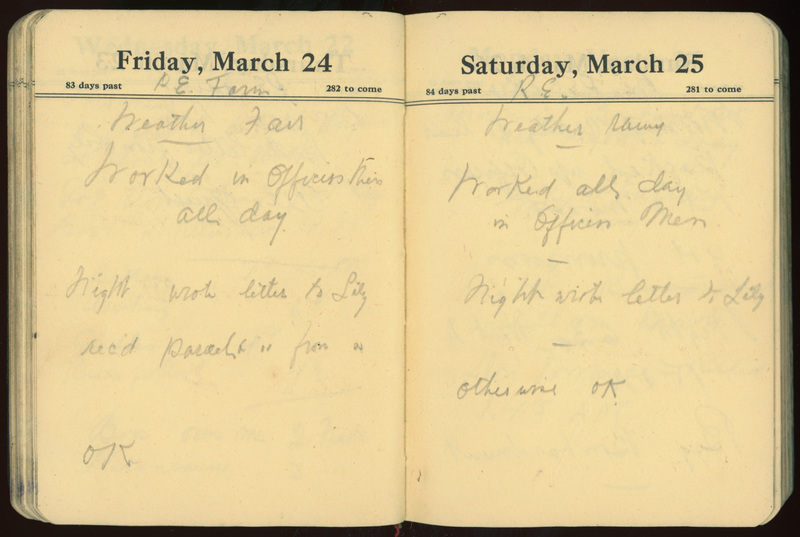 Friday, March 24
83 days past
282 to come
R.E. Farm.
Weather Fair
Worked in Officers
all day
Night wrote letter to Lily
rec'd " from "
OK
Saturday, March 25
84 days past
281 to come
R.E.
Weather rainy
Worked all day
in Officers Mess
Night wrote letter to Lily
otherwise OK